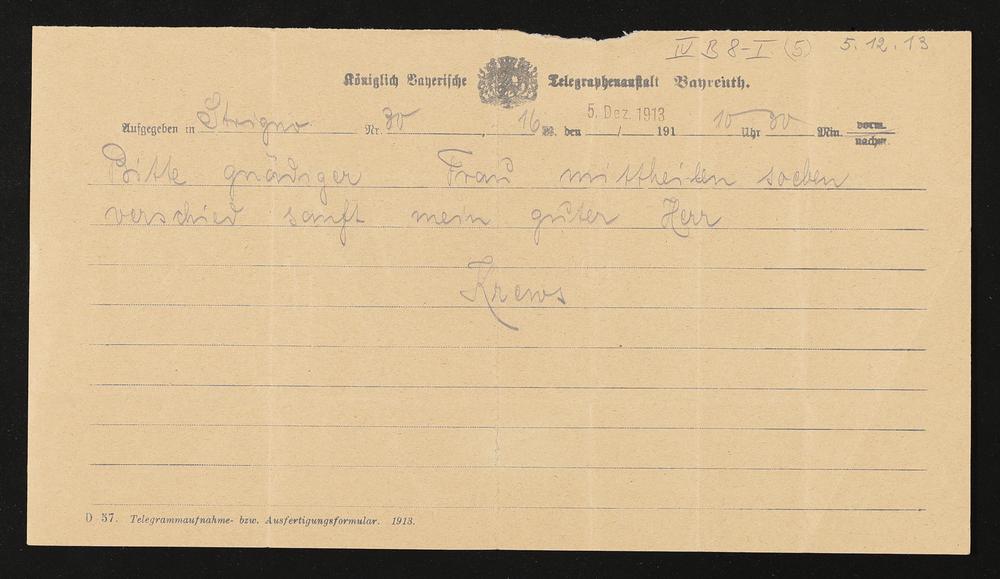 IV B 8-I (5) 5.12.13
Königlich Bayerische Telegraphenanstalt Bayreuth.
5. Dez. 1913
Aufgegeben in Strigno Nr. 30 16 W. den / 191 10 Uhr 30 Min. vorm. nachm.
Bitte gnädiger Frau mittheilen soeben
verschied sanft mein guter Herr
Krews
D 57. Telegrammaufnahme- bzw. Ausfertigungsformular. 1913.